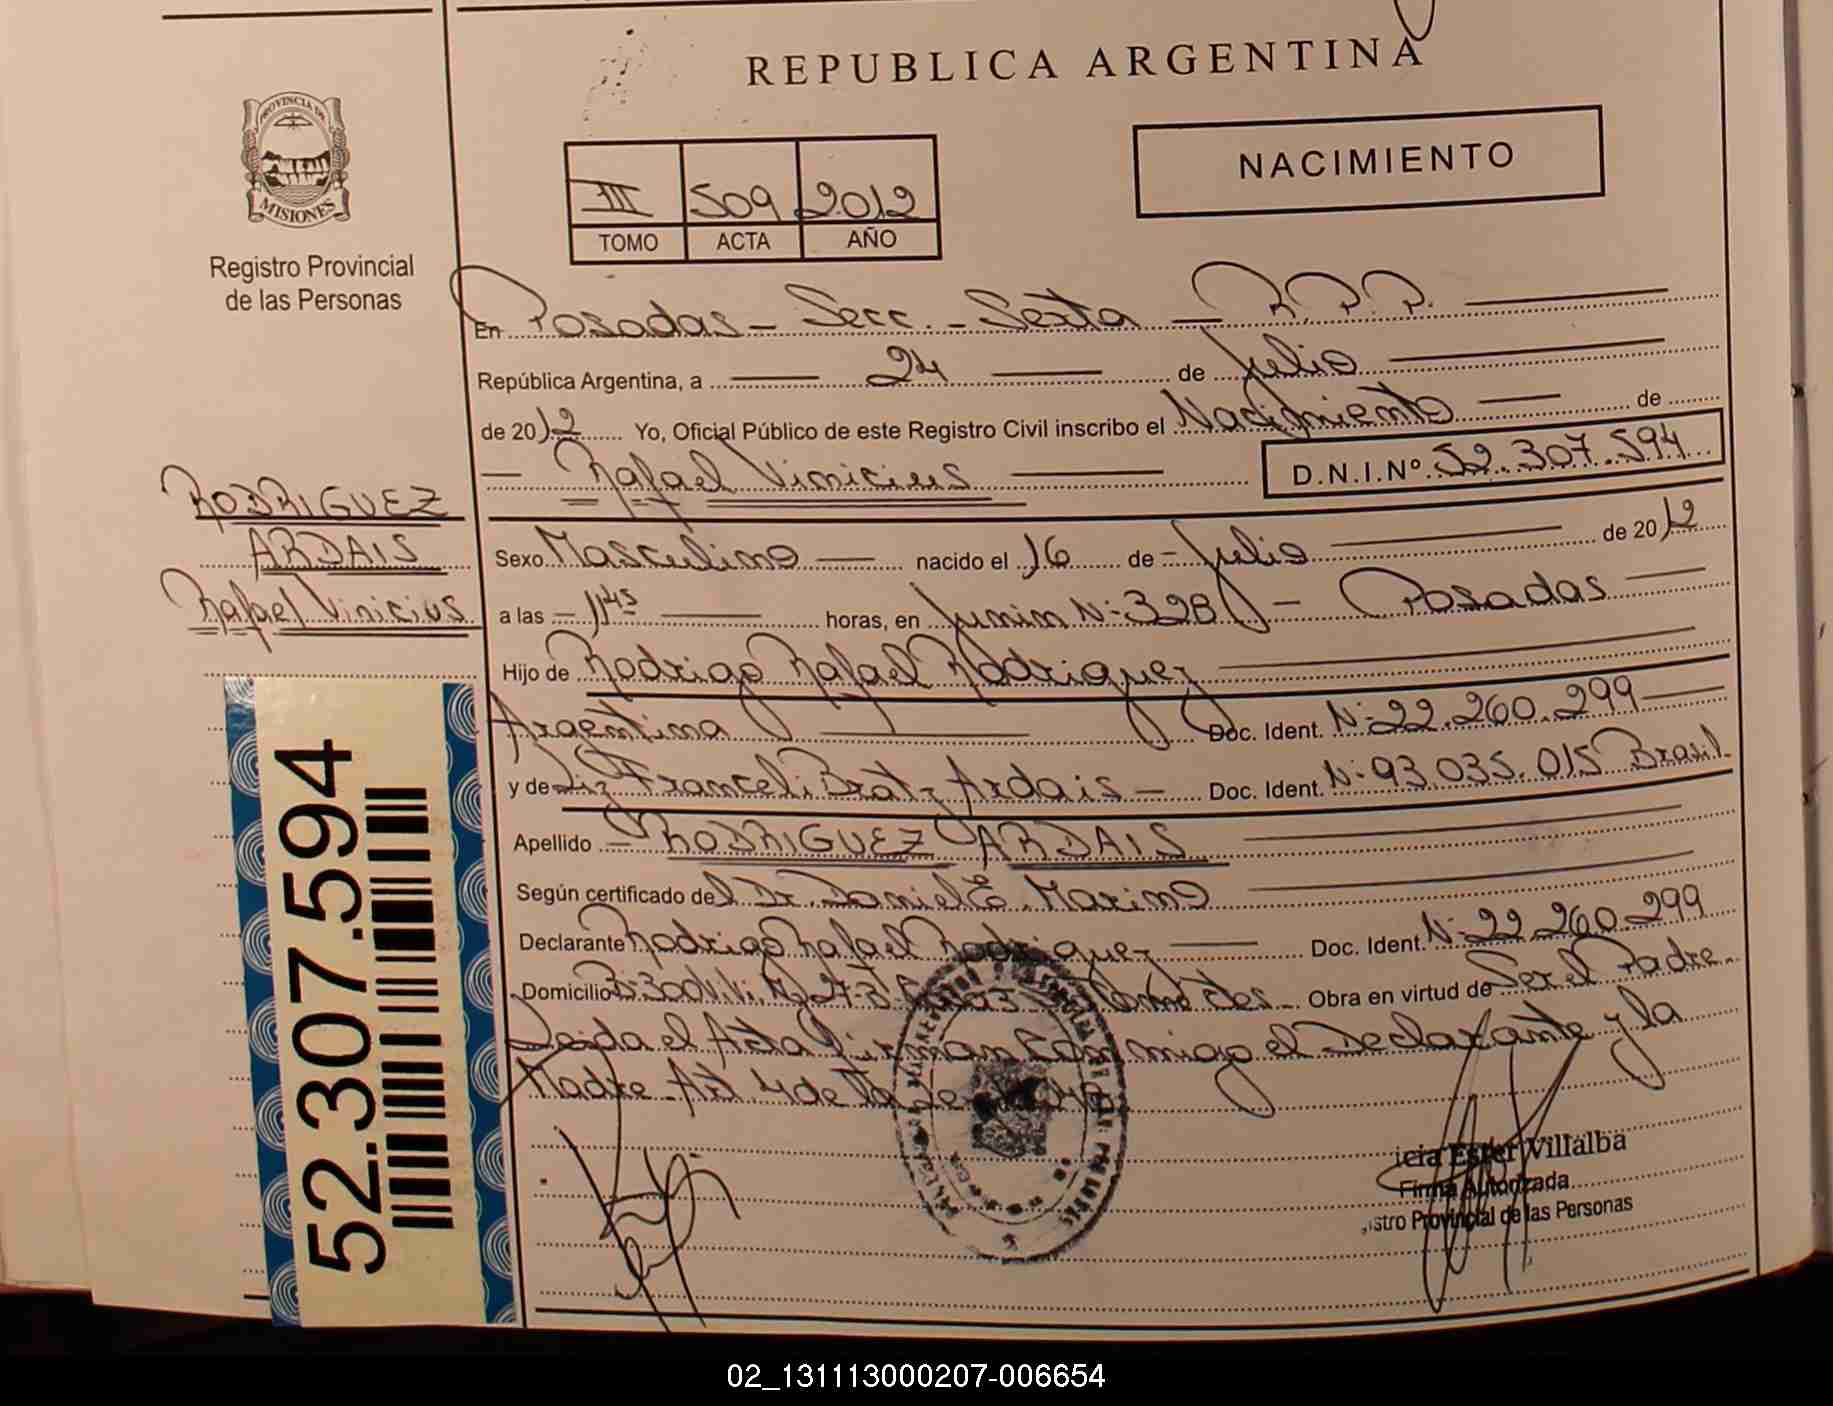 REPUBLICA ARGENTINA
PROVINCIA DE
MISIONES
Registro Provincial
de las Personas
NACIMIENTO
III 509 2012
TOMO ACTA AÑO
En Posadas - Secc. - Sexta - R.P.P.
República Argentina, a 24 de Julio
de 2012 Yo, Oficial Público de este Registro Civil inscribo el Nacimiento de
Rafael Vinicius D.N.I.Nº 52.307.594
RODRIGUEZ
ARDAIS
Rafael Vinicius
Sexo Masculino nacido el 16 de Julio de 2012
a las 11 45 horas, en Junin Nº 328 - Posadas
Hijo de Rodrigo Rafael Rodriguez
Argentina Doc. Ident. Nº 22.260.299
y de Liz Franceli Bratz Ardais Doc. Ident. Nº 93.035.015 Brasil
Apellido RODRIGUEZ ARDAIS
Según certificado del Dr. Daniel E. Marino
Declarante Rodrigo Rafael Rodriguez Doc. Ident. Nº 22.260.299
Domicilio Bº 300 V.V. Obra en virtud de Ser el Padre
Leida el Acta Firman Conmigo el Declarante y la
Madre
52.307.594
icia Ester Villalba
Firma Autorizada
istro Provincial de las Personas
02_131113000207-006654